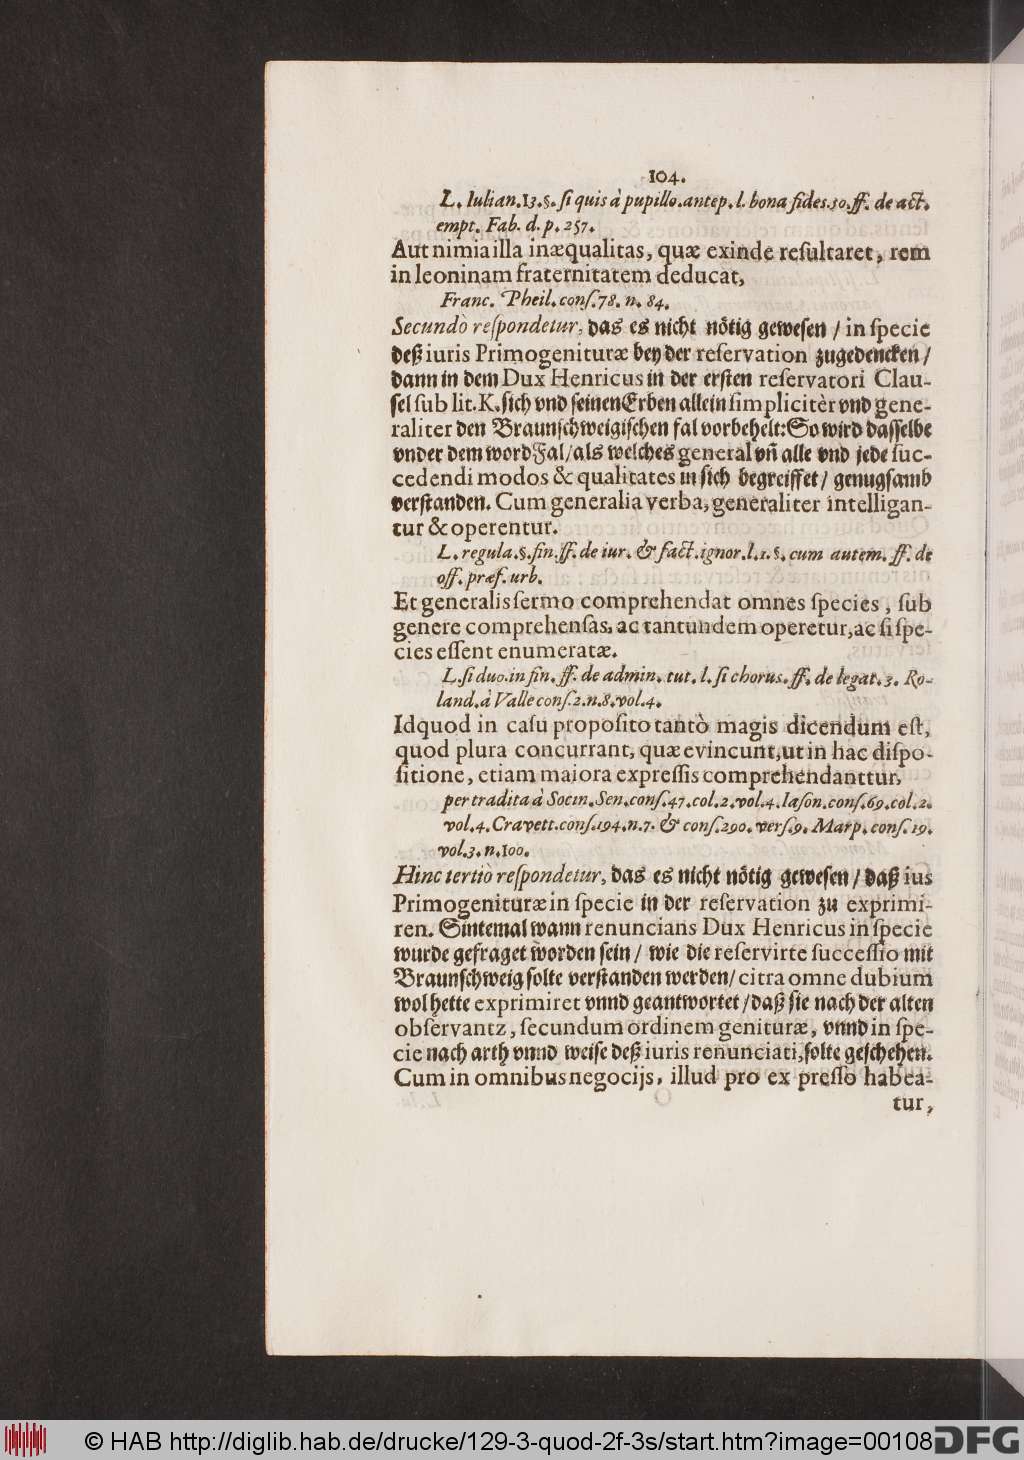 104.
L. Iulian.13.§. ſi quis à pupillo.antep.l. bona fides.50.ff. de act.
empt. Fab. d. p. 257.
Aut nimia illa inæqualitas, quæ exinde reſultaret, rem
in leoninam fraternitatem deducat,
Franc. Pheil. conſ. 78. n. 84.
Secundò reſpondetur, das es nicht nötig gewesen / in ſpecie
deß iuris Primogenituræ bey der reſervation zugedencken /
dann in dem Dux Henricus in der ersten reſervatori Clau-
ſel ſub lit. K. ſich vnd ſeinen Erben allein ſimplicitèr vnd gene-
raliter den Braunſchweigiſchen fal vorbehelt: So wird daſſelbe
vnder dem word Fal / als welches general vn̄ alle vnd jede ſuc-
cedendi modos & qualitates in ſich begreiffet / genugſamb
verſtanden. Cum generalia verba, generaliter intelligan-
tur & operentur.
L. regula.§. fin. ff. de iur. & fact. ignor. l.1.§. cum autem. ff. de
off. præf. urb.
Et generalis ſermo comprehendat omnes ſpecies, ſub
genere comprehenſas, ac tantundem operetur, ac ſi ſpe-
cies eſſent enumeratæ.
L. ſi duo. in fin. ff. de admin. tut. l. ſi chorus. ff. de legat. 3. Ro-
land. à Valle conſ. 2. n. 8. vol. 4.
Idquod in caſu propoſito tantò magis dicendum eſt,
quod plura concurrant, quæ evincunt, ut in hac diſpo-
ſitione, etiam maiora expreſſis comprehendanttur,
per tradita à Socin. Sen. conſ. 47. col. 2. vol. 4. Iaſon. conſ. 69. col. 2.
vol. 4. Cravett. conſ. 194. n. 7. & conſ. 290. verſ. 9. Marp. conſ. 19.
vol. 3. n. 100.
Hinc tertiò reſpondetur, das es nicht nötig geweſen / daß ius
Primogenituræ in ſpecie in der reſervation zu exprimi-
ren. Sintemal wann renuncians Dux Henricus in ſpecie
wurde gefraget worden ſein / wie die reſervirte ſucceſſio mit
Braunſchweig ſolte verſtanden werden / citra omne dubium
wol hette exprimiret vnnd geantwortet / daß ſie nach der alten
obſervantz, ſecundum ordinem genituræ, vnnd in ſpe-
cie nach arth vnnd weiſe deß iuris renunciati, ſolte geſchehen.
Cum in omnibus negocijs, illud pro ex preſſo habea-
tur,
© HAB http://diglib.hab.de/drucke/129-3-quod-2f-3s/start.htm?image=00108
DFG